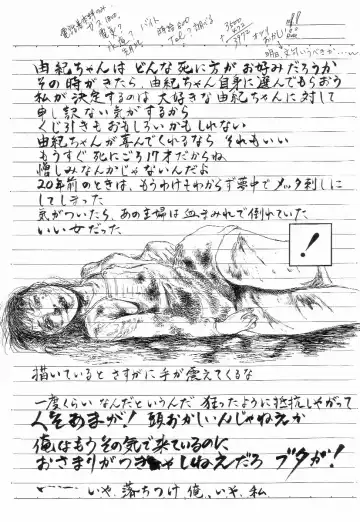 由紀ちゃんは どんな死に方が お好みだろうか
その時がきたら、由紀ちゃん自身に選んでもらおう
私が決定するのは 大好きな由紀ちゃんに対して
申し訳ない気がするから
くじ引きもおもしろいかもしれない
由紀ちゃんが喜んでくれるなら それもいい
もうすぐ死にごろ17才だからね
憎しみなんかじゃないんだよ
20年前のときは、もうわけもわからず夢中でメッタ刺しに
してしまった
気がついたら、あの主婦は血まみれで倒れていた
いい女だった
!
描いていると さすがに手が震えてくるな
一度くらい なんだというんだ 狂ったように抵抗しやがって
くそあまが! 頭おかしいんじゃねえか
俺はもうその気で来ているのに
おさまりがつきゃしねえだろ ブタが!
いや、落ちつけ 俺、いや、私